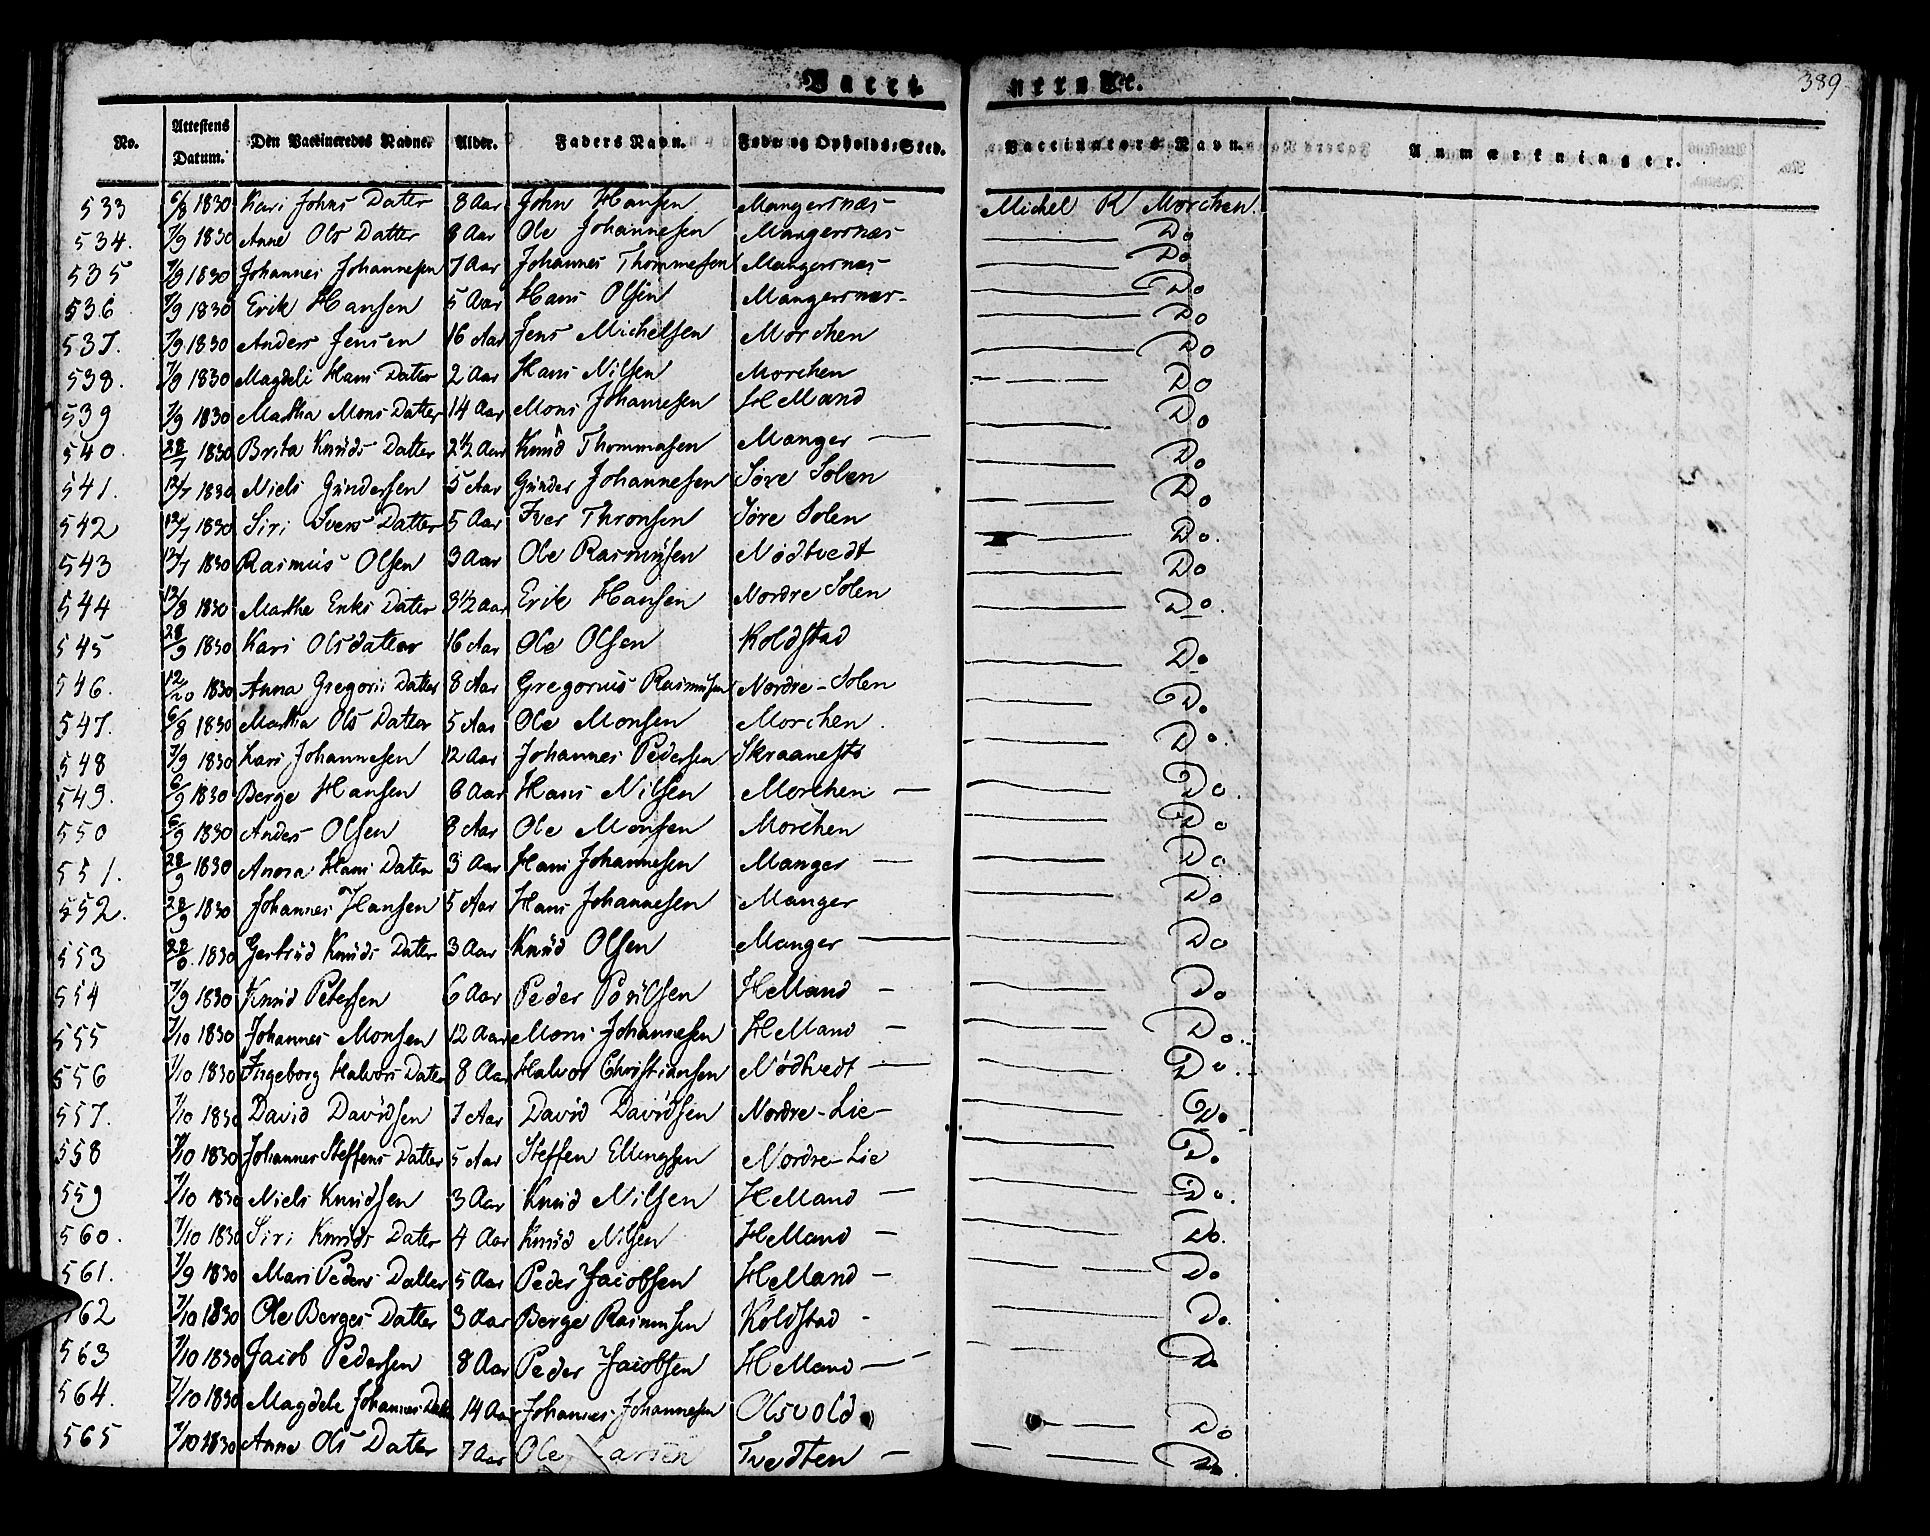 Vacci nerede.
389
No. Attestens Datum. Den Vaccineredes Navne. Alder. Faders Navn. Føde og Opholds-Sted. Vaccinators Navn. Anmærkninger.
533 6/8 1830 Kari Johns Datter 8 Aar John Hansen Mangersnæs Michel R Morchen.
534. 7/9 1830 Anne Ols Datter 8 Aar Ole Johannesen Mangersnæs — Do
535 7/9 1830 Johannes Johannesen 7 Aar Johannes Thommesen Mangersnæs — Do
536 7/9 1830 Erik Hansen 5 Aar Hans Olsen Mangersnæs — Do
537. 7/9 1830 Anders Jensen 16 Aar Jens Michelsen Morchen — Do
538. 7/9 1830 Magdeli Hans Datter 2 Aar Hans Nilsen Morchen — Do
539 7/9 1830 Martha Mons Datter 14 Aar Mons Johannesen Helland — Do
540 28/7 1830 Brita Knüds Datter 2 1/2 Aar Knüd Thommasen Manger — Do
541. 12/7 1830 Niels Gündersen 5 Aar Günder Johannesen Søre Solen — Do
542 12/7 1830 Siri Ivers Datter 5 Aar Iver Thronsen Søre Solen — Do
543 12/7 1830 Rasmüs Olsen 3 Aar Ole Rasmüsen Nødtvedt — Do.
544 12/8 1830 Marthe Eriks Datter 3 1/2 aar Erik Hansen Nordre Solen — Do
545 28/9 1830 Kari Olsdatter 16 Aar Ole Olsen Koldstad — Do.
546. 12/20 1830 Anna Gregorii Datter 8 Aar Gregorius Rasmüsen Nordre-Solen — Do
547. 6/8 1830 Martha Ols Datter 5 Aar Ole Monsen Morchen. — Do
548 7/9 1830 Kari Johannesen 12 Aar Johannes Pedersen Skraanests — Do.
549. 6/9 1830 Berge Hansen 6 Aar Hans Nilsen Morchen — Do.
550 6/9 1830 Anders Olsen 8 Aar Ole Monsen Morchen — Do
551. 28/9 1830 Anna Hans Datter 3 Aar Hans Johannesen Manger — Do
552. 28/9 1830 Johannes Hansen 5 Aar Hans Johannesen Manger — Do
553 1830 Gertrüd Knüds Datter 3 Aar Knüd Olsen Manger — Do
554 7/9 1830 Knüd Petersen 6 Aar Peder Poülsen Helland — Do
555 7/10 1830 Johannes Monsen 12 Aar Mons Johannesen Helland — Do.
556 7/10 1830 Ingeborg Halvors Datter 8 Aar Halvor Christiansen Nødtvedt — Do.
557. 7/10 1830 David Davidsen 7 Aar David Davidsen Nordre-Lie — Do
558 7/10 1830 Johannes Steffens Datter 5 Aar Steffen Ellingsen Nordre-Lie — Do.
559 7/10 1830 Niels Knüdsen 3 Aar Knüd Nilsen Helland — Do.
560. 7/10 1830 Siri Knüds Datter 4 Aar Knüd Nilsen Helland — Do.
561. 7/9 1830 Mari Peders Datter 5 Aar Peder Jacobsen Helland — Do
562 7/10 1830 Ole Berges Datter 3 Aar Berge Rasmusen Koldstad — Do.
563 7/10 1830 Jacob Pedersen 8 Aar Peder Jacobsen Helland — Do
564. 7/10 1830 Magdele Johannes Datter 14 Aar Johannes Johannesen Olsvold — Do
565 7/10 1830 Anne Ols Datter 7 Aar Ole Larsen Tvedten — Do.